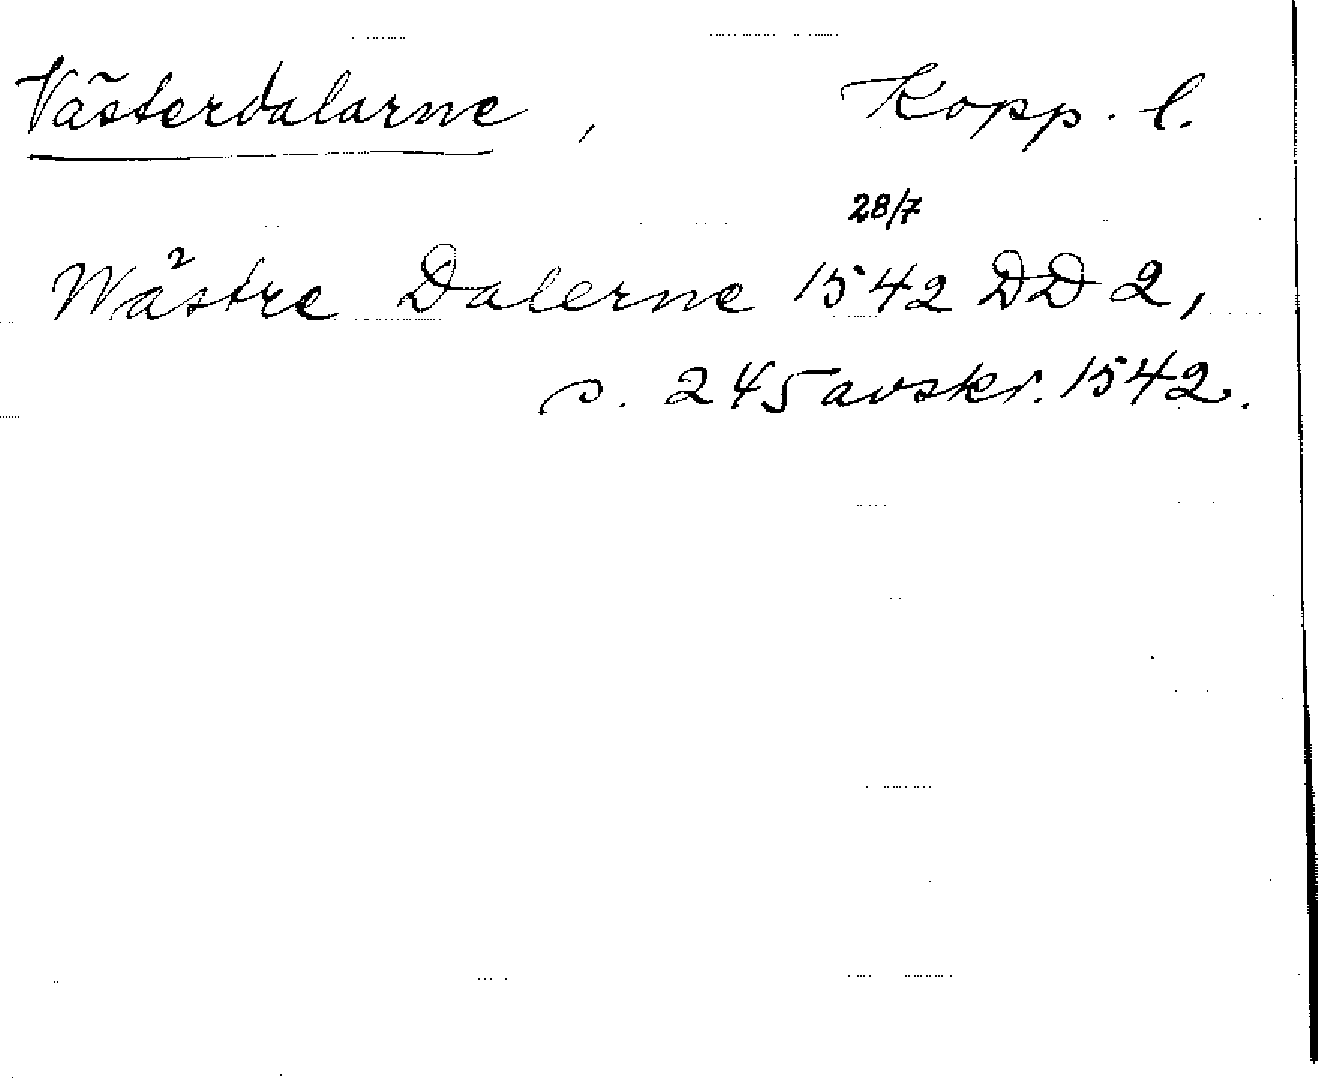 Västerdalarne, Kopp. l.
28/7
Wästre Dalerne 1542 DD 2,
s. 245 avskr. 1542.